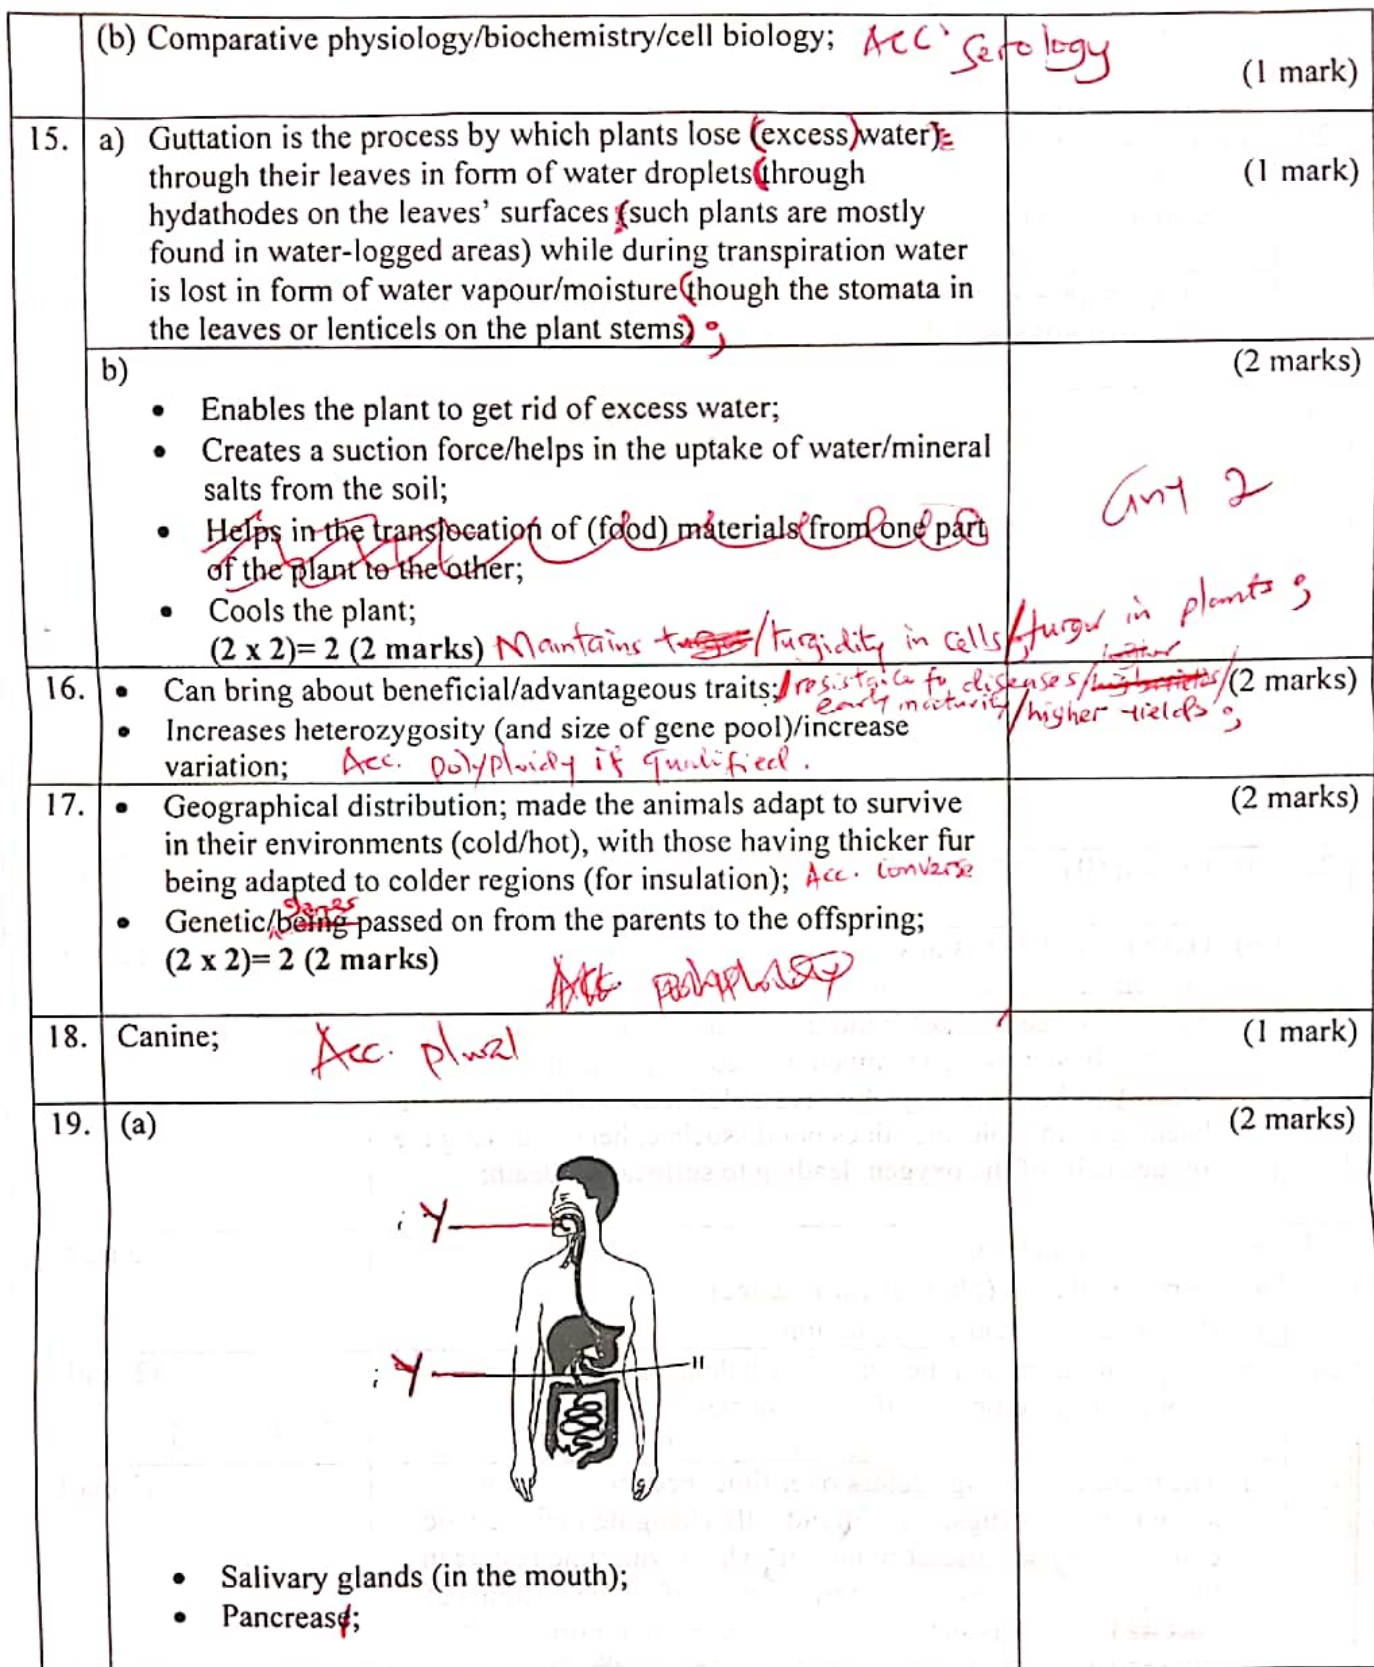 (b) Comparative physiology/biochemistry/cell biology; Acc. Serology
(1 mark)
15. a) Guttation is the process by which plants lose (excess) water);
through their leaves in form of water droplets (through
(1 mark)
hydathodes on the leaves' surfaces; (such plants are mostly
found in water-logged areas) while during transpiration water
is lost in form of water vapour/moisture (though the stomata in
the leaves or lenticels on the plant stems) ;
b)
(2 marks)
• Enables the plant to get rid of excess water;
• Creates a suction force/helps in the uptake of water/mineral
salts from the soil;
any 2
• Helps in the translocation of (food) materials from one part
of the plant to the other;
• Cools the plant;
(2 x 2)= 2 (2 marks) Maintains /turgidity in cells/turgor in plants ;
16. • Can bring about beneficial/advantageous traits; /resistance to diseases/
(2 marks)
early maturity/higher yields ;
• Increases heterozygosity (and size of gene pool)/increase
variation; Acc. polyploidy if qualified.
17. • Geographical distribution; made the animals adapt to survive
(2 marks)
in their environments (cold/hot), with those having thicker fur
being adapted to colder regions (for insulation); Acc. converse
genes
• Genetic/being passed on from the parents to the offspring;
(2 x 2)= 2 (2 marks)
Acc. polyploidy
18. Canine; Acc. plural
(1 mark)
19. (a)
(2 marks)
i Y
i Y
II
• Salivary glands (in the mouth);
• Pancreas;